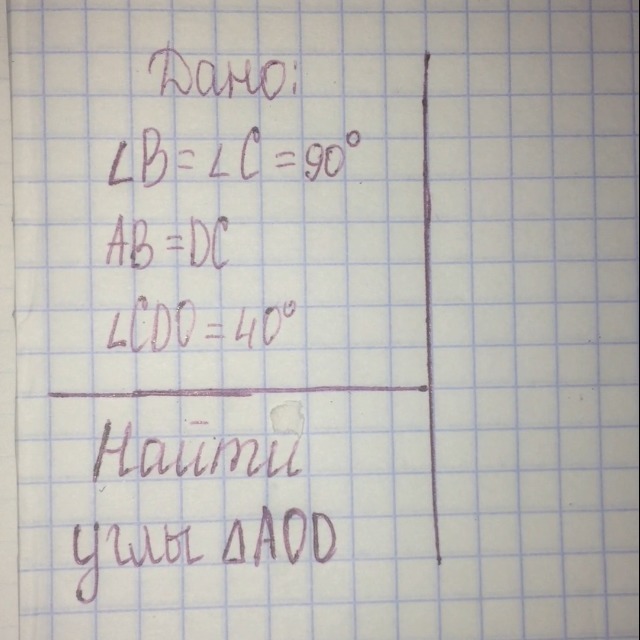 Дано:
∠B = ∠C = 90°
AB = DC
∠CDO = 40°
Найти
углы ΔAOD